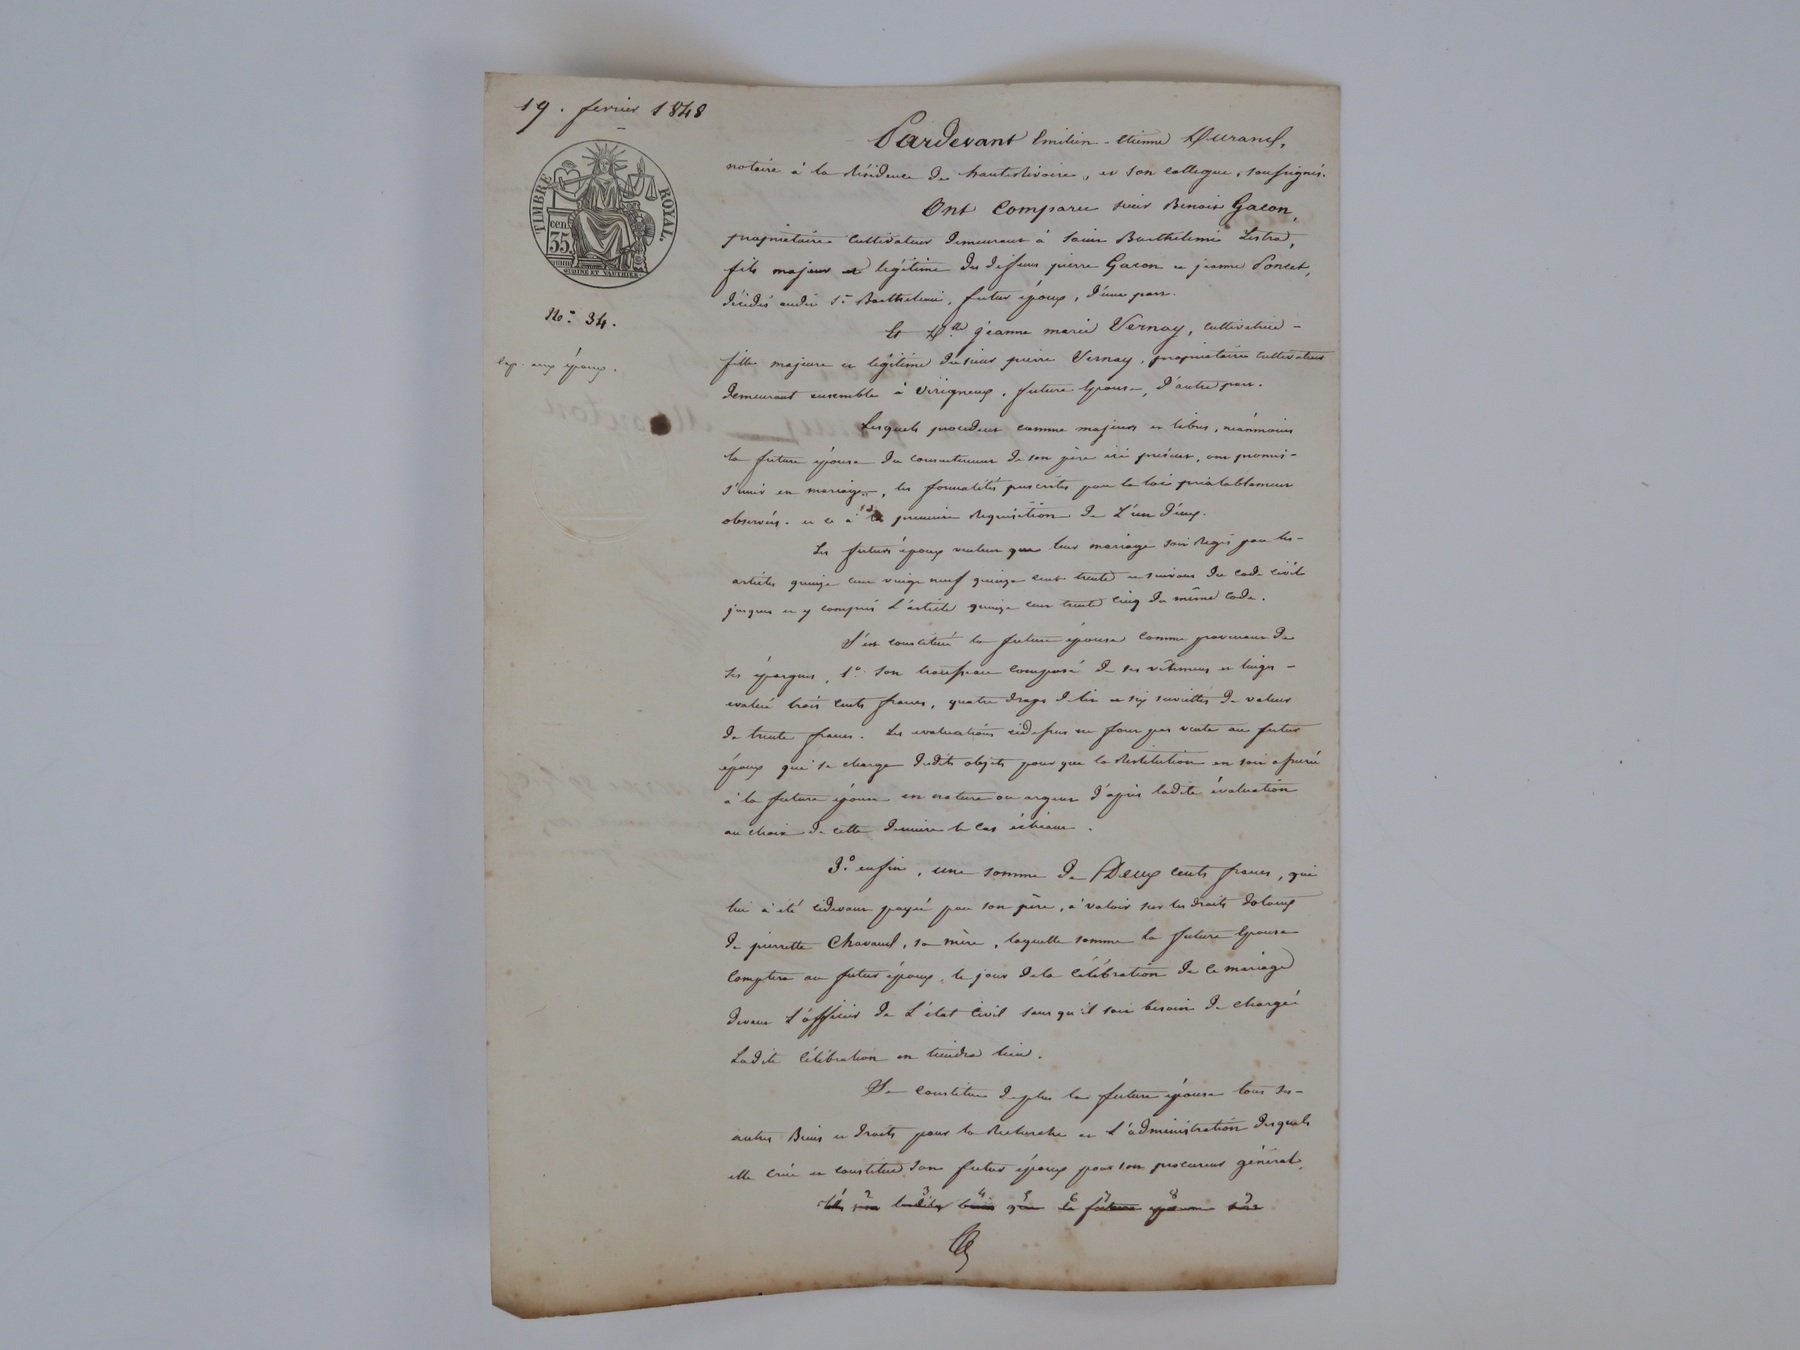 19. fevrier 1848
TIMBRE ROYAL.
cen.
35.
OUDINE ET VAUTHIER.
No: 34.
exp. aux époux.
Pardevant Emilien-etienne Durand,
notaire à la Résidence de hauterivoire, et son collegue, soussignés.
Ont Comparu sieur Benoit Gacon,
propriétaire Cultivateur demeurant à Saint Barthélemie Lestra,
fils majeur et légitime des defunts pierre Gacon et jeanne Poncet,
décédés audit St Barthelemi, futur époux, d'une part.
Et Dlle jeanne marie Vernay, cultivatrice -
fille majeure et légitime du sieur pierre Vernay, propriétaire cultivateur
demeurant ensemble à Virigneux, future Epouse, d'autre part.
Lesquels procedant comme majeurs et libres, néanmoins
la future épouse du consentement de son père ici présent, ont promis -
s'unir en mariage, les formalités prescrites par la loi préalablement
observées. et ce à la premiere Requisition de L'un d'eux.
Les futurs époux veulent que leur mariage soit Regis par les -
articles quinze cent vingt neuf quinze cent trente et suivans du code civil
jusques et y compris L'article quinze cent trente cinq du même Code.
S'est constitué la future épouse comme provenant de
ses épargnes, 1o son trousseau composé de ses vêtemens et linges -
evalué trois cents francs, quatre draps de lit et six serviettes de valeur
de trente francs. Les evaluations cidessus ne font pas vente au futur
époux qui se charge desdits objets pour que la Restitution en soit assurée
à la future épouse en nature ou argent d'après ladite évaluation
au choix de cette derniere le cas échéant.
3o enfin, une somme de Deux cents francs, qui
lui à été cidevant payée par son père, à valoir sur les droits dotaux
de pierrette Chavand, sa mère, laquelle somme la future Epouse
Comptera au futur époux, le jour de la Célébration de ce mariage
devant L'officier de L'état Civil sans qu'il soit besoin de chargé
Ladite Célébration en tiendra lieu.
Se constitue de plus la future épouse tous ses -
autres Biens et Droits pour la Recherche et L'administration desquels
elle crée et constitue son futur époux pour son procureur général,
1 2 3 4 5 6 7 8 9
la future épouse